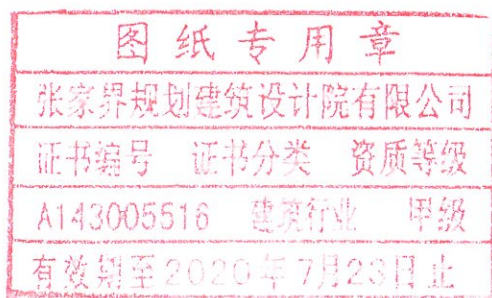 图纸专用章
张家界规划建筑设计院有限公司
证书编号 证书分类 资质等级
A143005516 建筑行业 甲级
有效期至2020年7月23日止